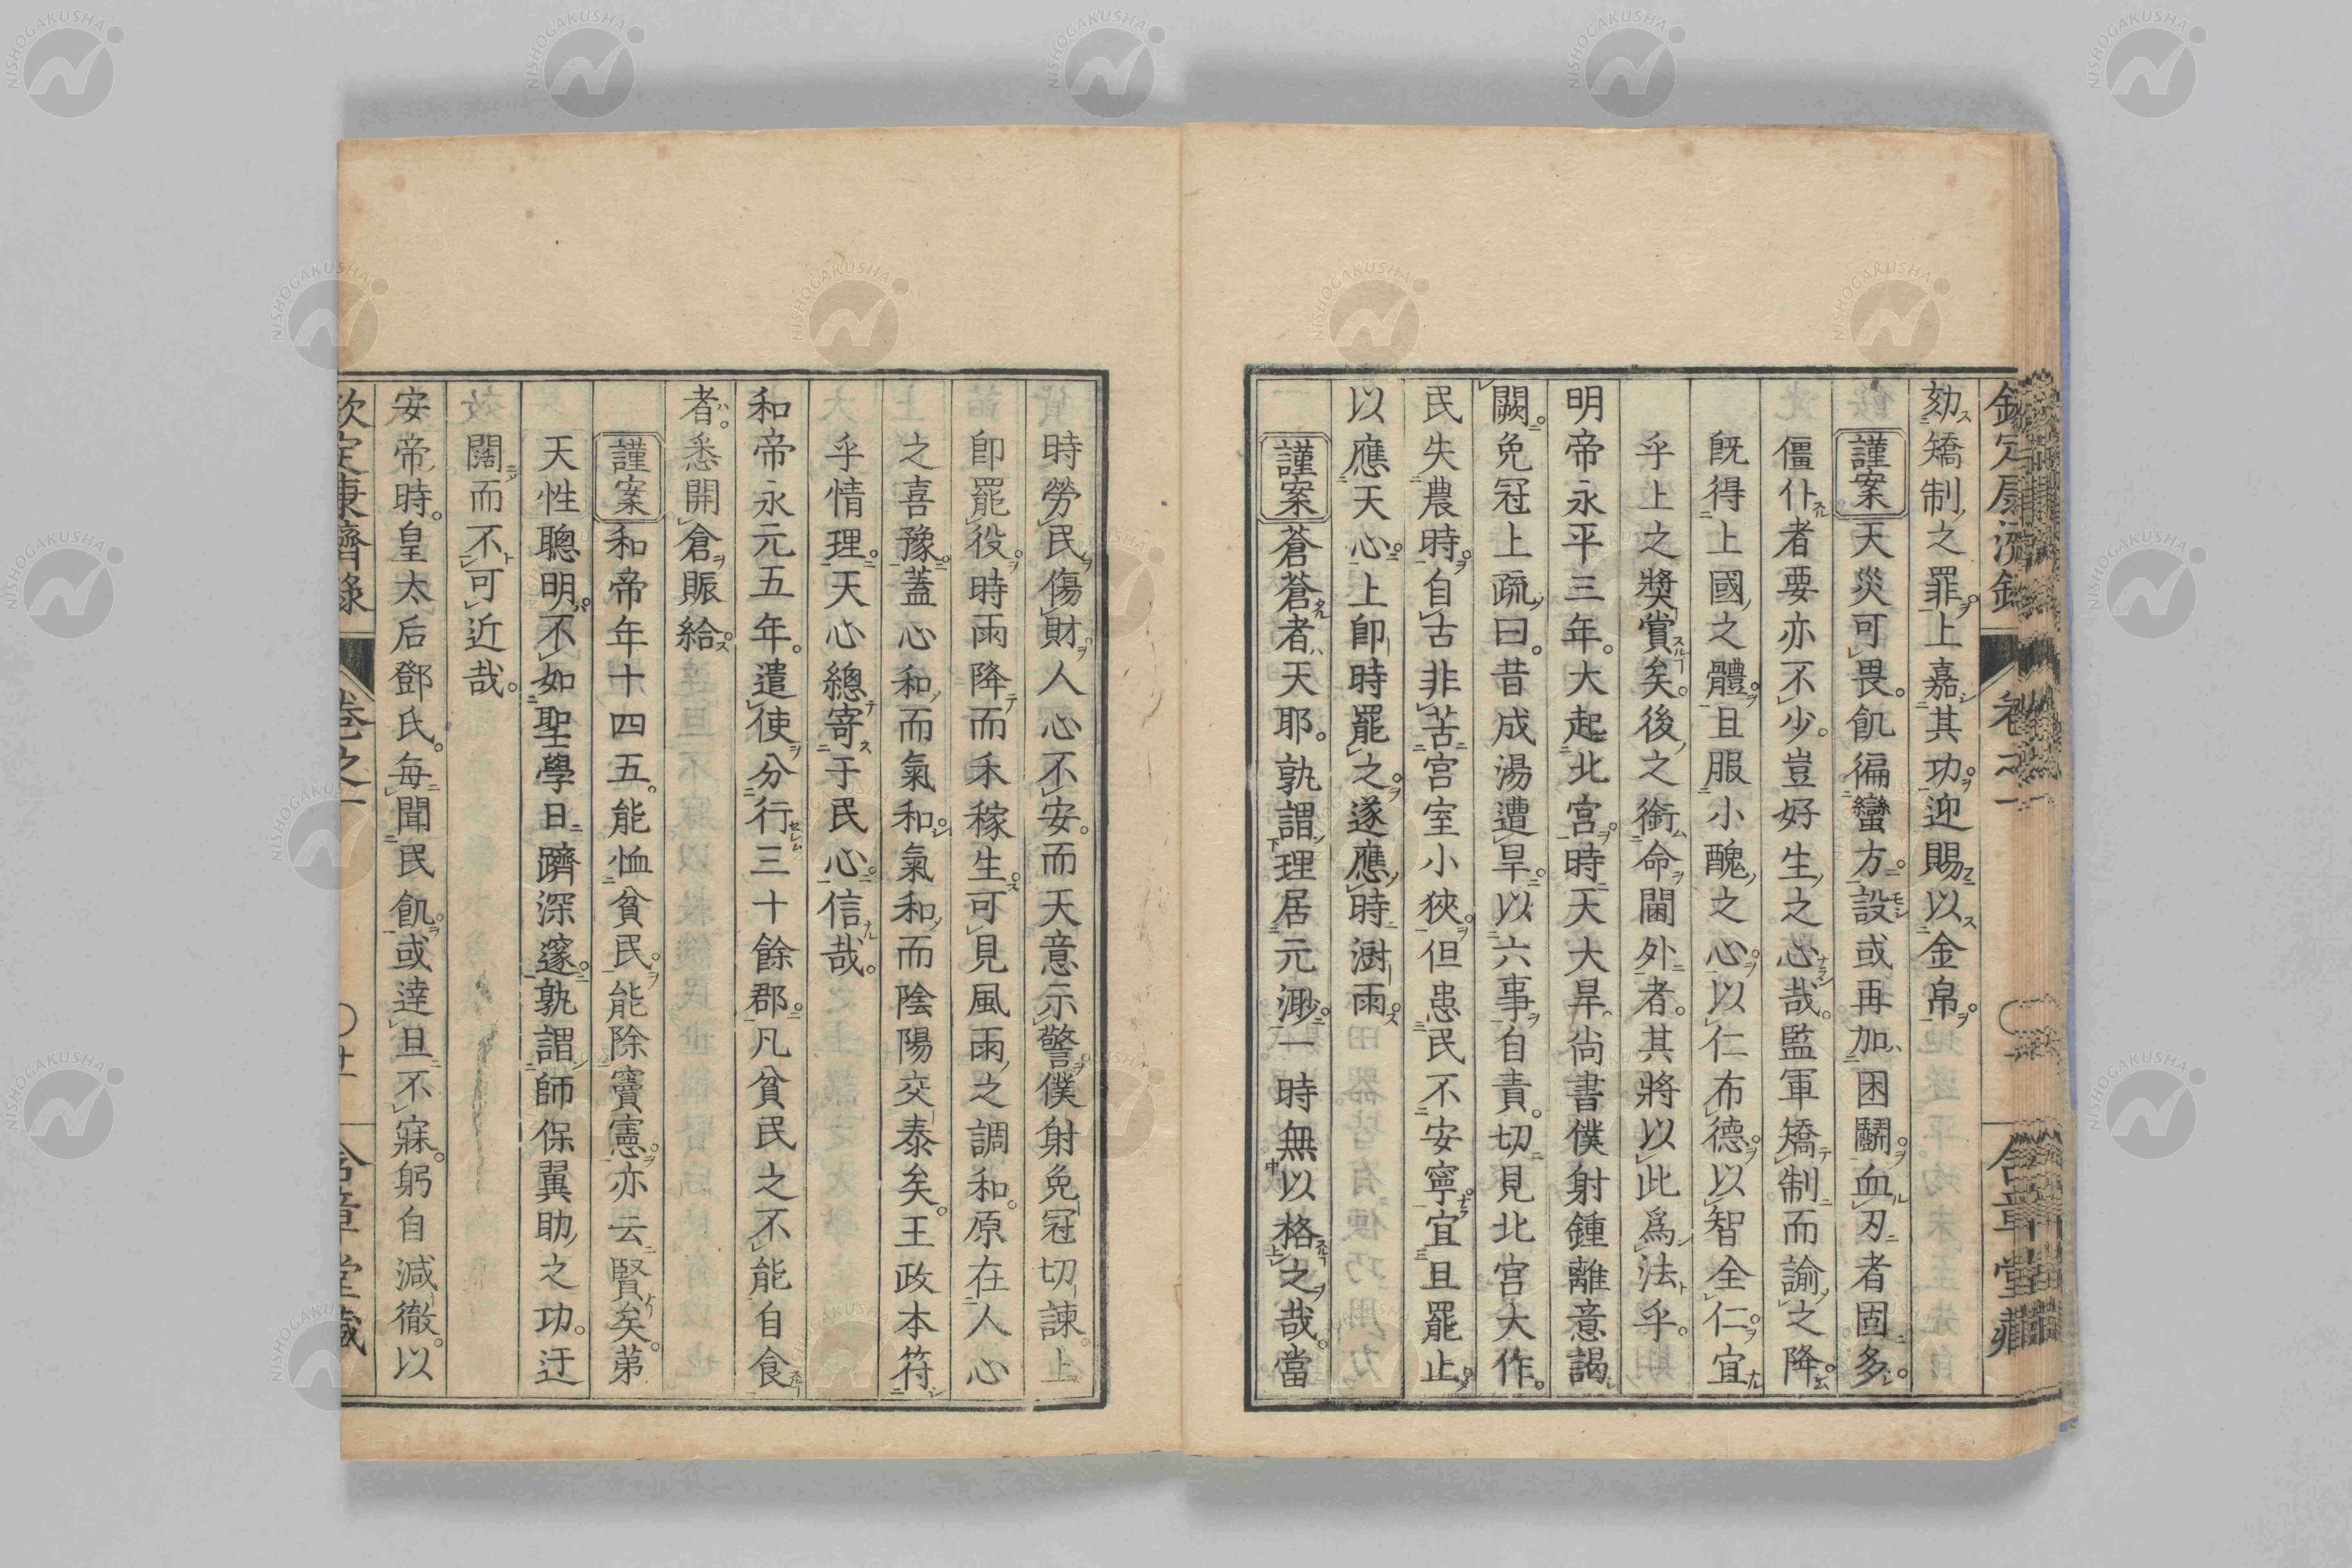 劾矯制之罪上嘉其功迎賜以金帛
謹案天災可畏飢徧蠻方設或再加困鬭血刃者固多
僵仆者要亦不少豈好生之心哉監軍矯制而諭之降
旣得上國之體且服小醜之心以仁布德以智全仁宜
乎上之奬賞矣後之銜命閫外者其將以此爲法乎
明帝永平三年大起北宮時天大旱尙書僕射鍾離意謁
闕免冠上疏曰昔成湯遭旱以六事自責切見北宮大作
民失農時自古非苦宮室小狹但患民不安寧宜且罷止
以應天心上卽時罷之遂應時澍雨
謹案蒼蒼者天耶孰謂理居元渺一時無以格之哉當
時勞民傷財人心不安而天意示警僕射免冠切諫上
卽罷役時雨降而禾稼生可見風雨之調和原在人心
之喜豫蓋心和而氣和氣和而陰陽交泰矣王政本符
乎情理天心總寄于民心信哉
和帝永元五年遣使分行三十餘郡凡貧民之不能自食
者悉開倉賑給
謹案和帝年十四五能恤貧民能除竇憲亦云賢矣第
天性聰明不如聖學日躋深邃孰謂師保翼助之功迂
闊而不可近哉
安帝時皇太后鄧氏每聞民飢或達旦不寐躬自減徹以
欽定康濟錄 卷之一 〇廿一 含章堂藏
NISHOGAKUSHA